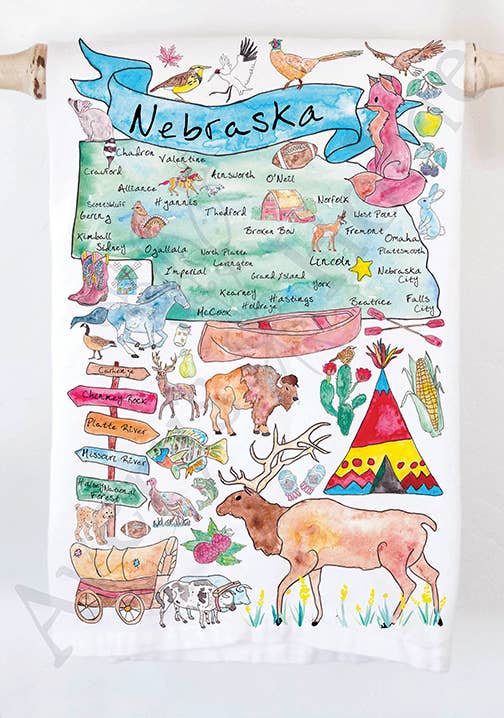 Nebraska
Chadron
Valentine
Crawford
Alliance
Ainsworth
O'Neil
Scottsbluff
Hyannis
Norfolk
Gering
Thedford
West Point
Broken Bow
Fremont
Kimball
Omaha
Sidney
Ogallala
North Platte
Plattsmouth
Lexington
Lincoln
Imperial
Grand Island
Nebraska
City
York
Kearney
Hastings
Holdrege
McCook
Beatrice
Falls
City
Carhenge
Chimney Rock
Platte River
Missouri River
Halsey National
Forest